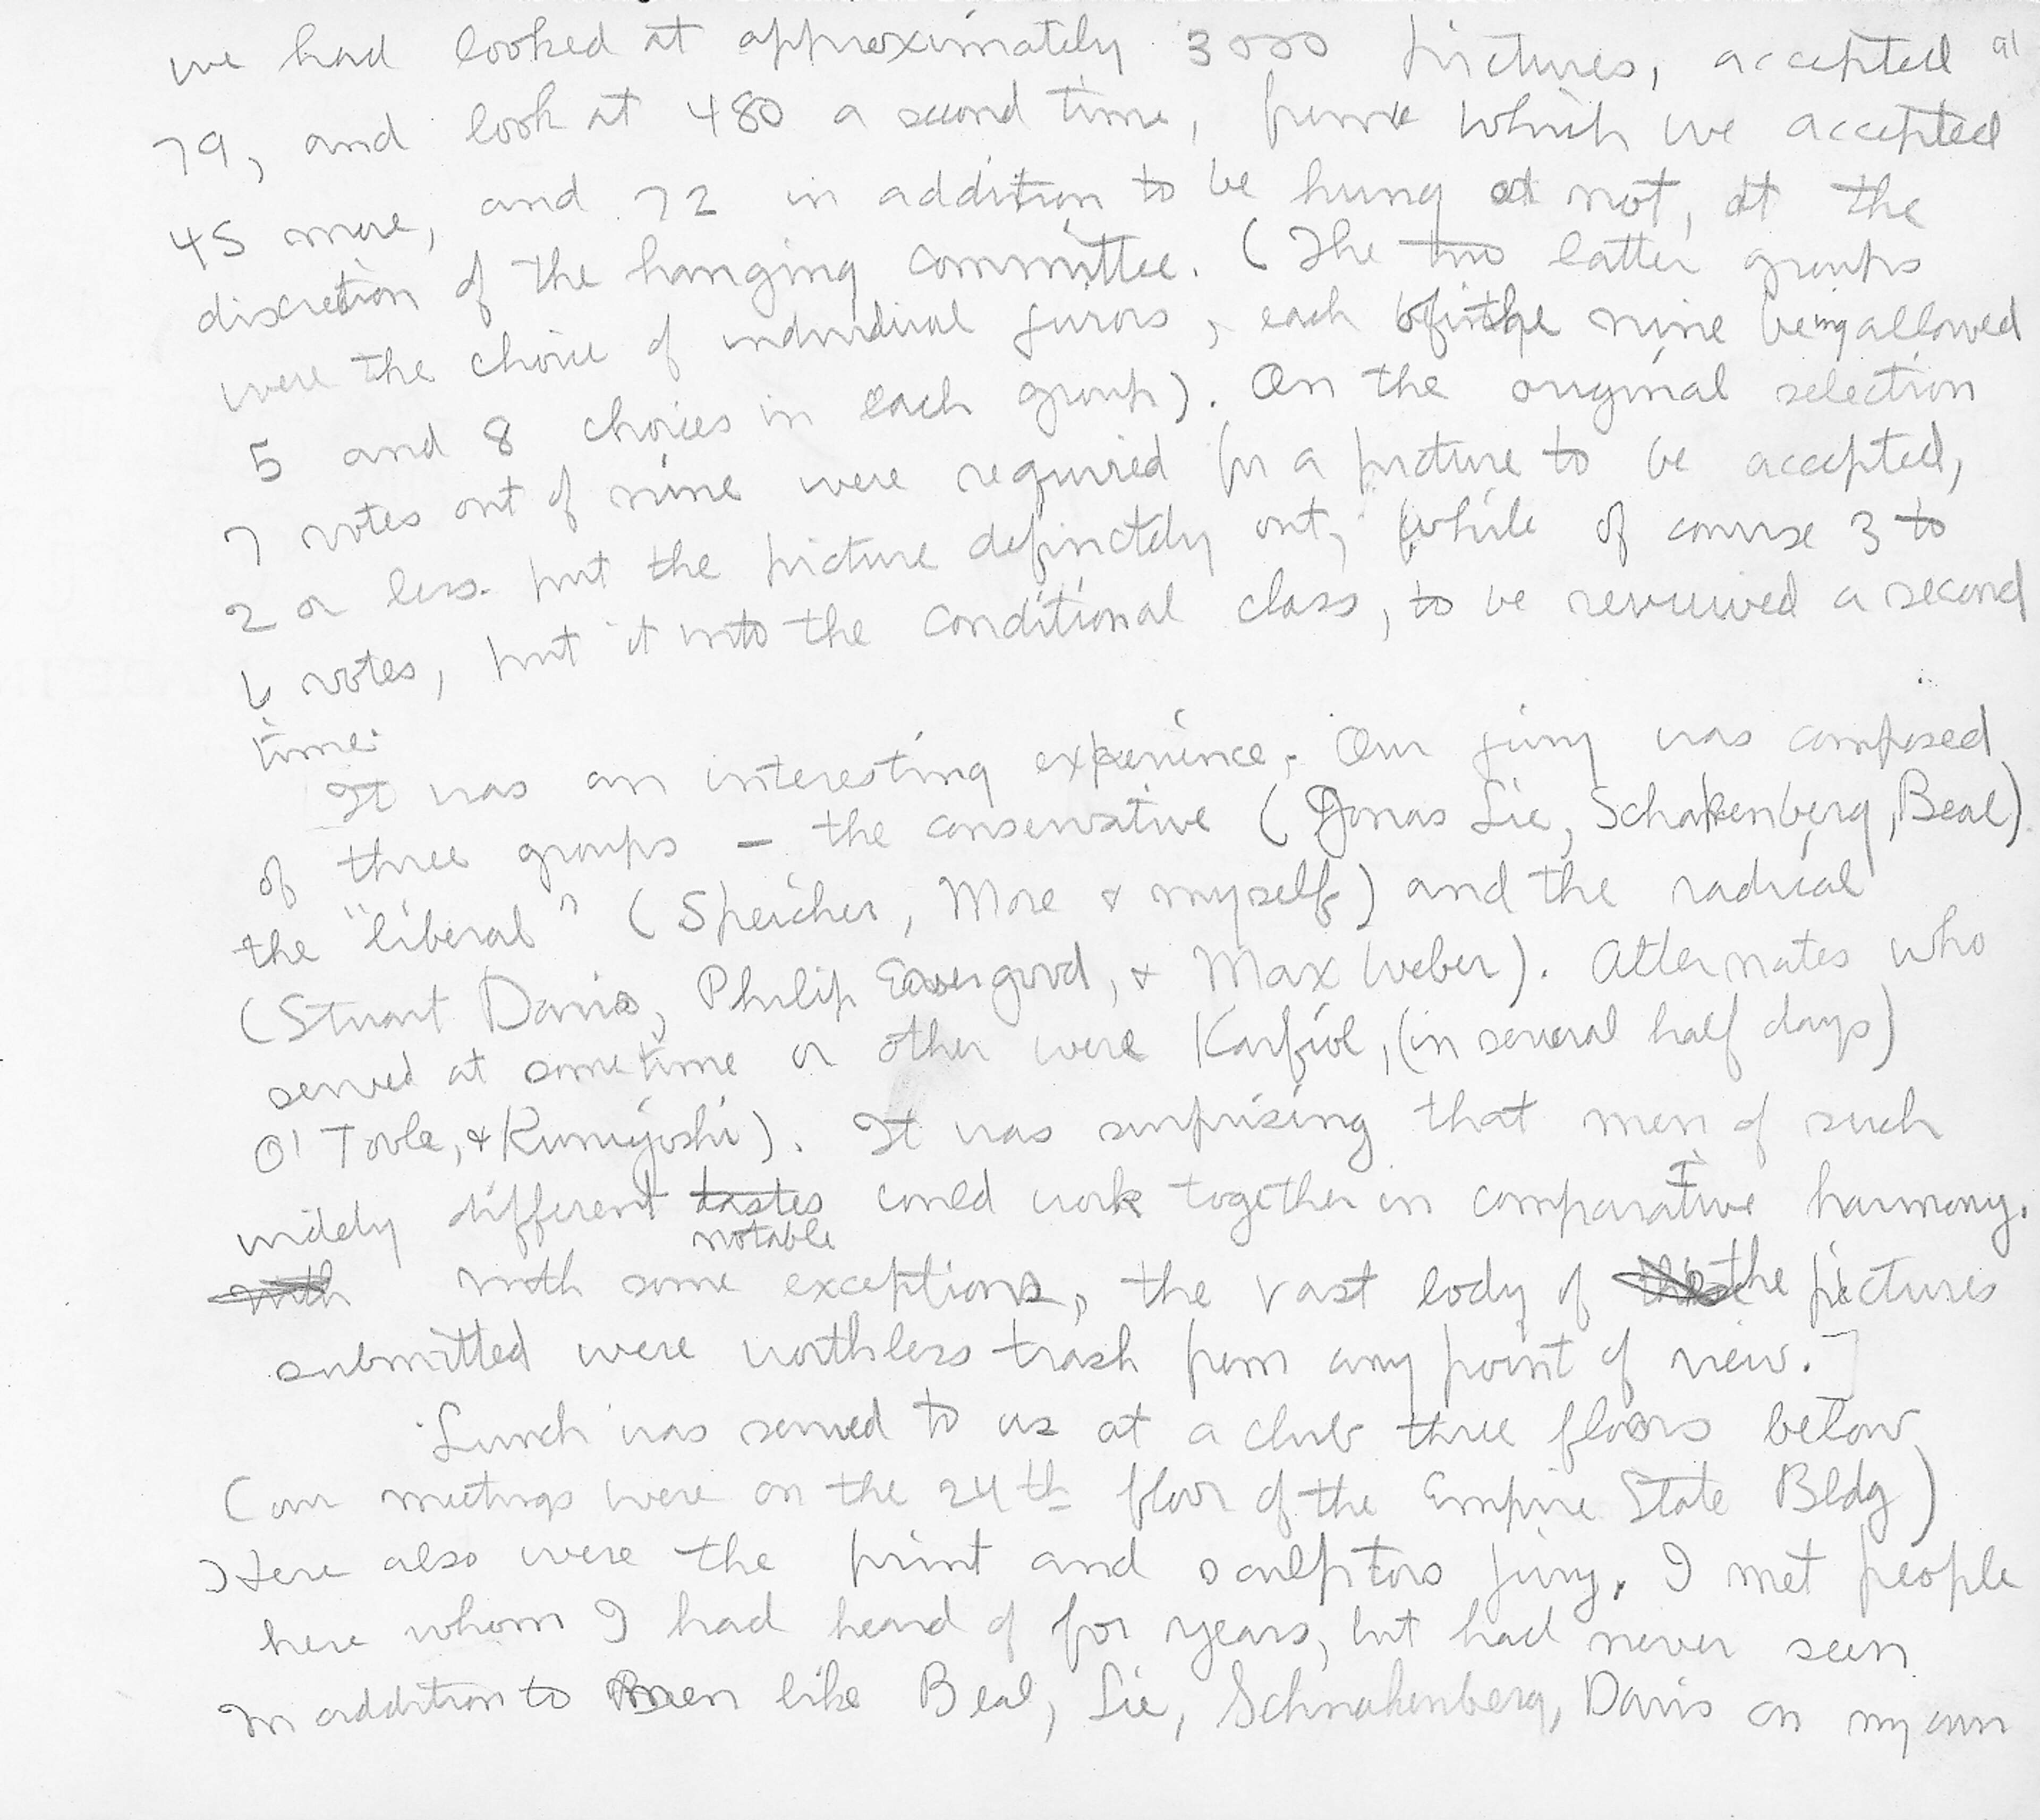 we had looked at approximately 3000 pictures, accepted
79, and look at 480 a second time, from which we accepted
45 more, and 72 in addition to be hung or not, at the
discretion of the hanging committee. (The two latter groups
were the choice of individual jurors, each of the nine being allowed
5 and 8 choices in each group). On the original selection
7 votes out of nine were required for a picture to be accepted,
2 or less put the picture definitely out, while of course 3 to
6 votes, put it into the conditional class, to be reviewed a second
time.
It was an interesting experience. Our jury was composed
of three groups – the conservative (Jonas Lie, Schakenberg, Beal)
the "liberal" (Speicher, More & myself) and the radical
(Stuart Davis, Philip Evergood, & Max Weber). Alternates who
served at sometime or other were Karfiol, (in several half days)
O'Toole, & Kuniyoshi). It was surprising that men of such
widely different tastes could work together in comparative harmony.
notable
with with some exceptions, the vast body of the pictures
submitted were worthless trash from any point of view.]
Lunch was served to us at a club three floors below
(our meetings were on the 24th floor of the Empire State Bldg)
Here also were the print and sculptors jury. I met people
here whom I had heard of for years, but had never seen
In addition to men like Beal, Lie, Schnakenberg, Davis on my own